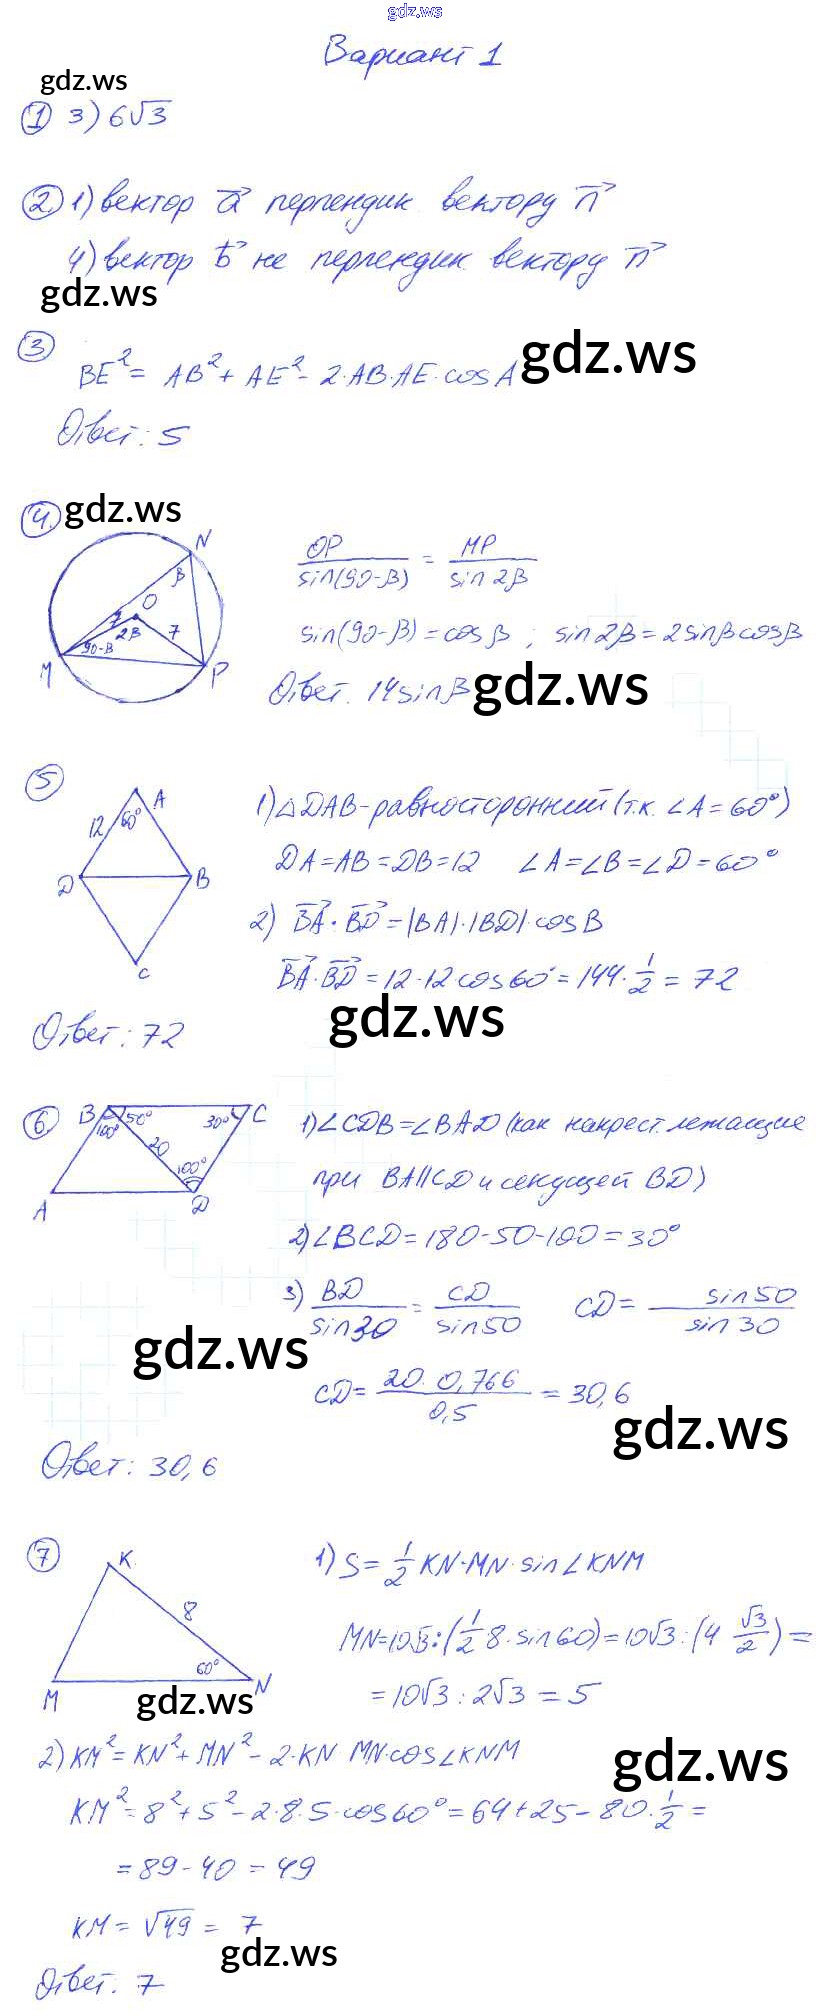 gdz.ws
Вариант 1
gdz.ws
① 3) 6√3
② 1) вектор a⃗ перпендик. вектору n⃗
4) вектор b⃗ не перпендик. вектору n⃗
gdz.ws
③ BE² = AB² + AE² - 2·AB·AE·cosA
gdz.ws
Ответ: 5
④ gdz.ws
N
β
O
7
2β
7
90-β
M
P
OP/sin(90-β) = MP/sin2β
sin(90-β) = cosβ ; sin2β = 2sinβcosβ
Ответ. 14sinβ
gdz.ws
⑤
A
12
60°
D
B
C
1) △DAB - равносторонний (т.к. ∠A = 60°)
DA = AB = DB = 12 ∠A = ∠B = ∠D = 60°
2) BA⃗ · BD⃗ = |BA|·|BD|·cosB
BA⃗·BD⃗ = 12·12·cos60° = 144·1/2 = 72
gdz.ws
Ответ: 72
⑥
B
50°
30°
C
100°
20
100°
A
D
1) ∠CDB = ∠BAD (как накрест. лежащие
при BA||CD и секущей BD)
2) ∠BCD = 180-50-100 = 30°
3) BD/sin30 = CD/sin50 CD = sin50/sin30
gdz.ws
CD = 20·0,766/0,5 = 30,6
gdz.ws
Ответ: 30,6
⑦
K
8
60°
M
N
1) S = 1/2 KN·MN·sin∠KNM
MN = 10√3 : (1/2 8·sin60) = 10√3 : (4 √3/2) =
= 10√3 : 2√3 = 5
gdz.ws
2) KM² = KN² + MN² - 2·KN MN·cos∠KNM
gdz.ws
KM² = 8² + 5² - 2·8·5·cos60° = 64 + 25 - 80·1/2 =
= 89 - 40 = 49
KM = √49 = 7
gdz.ws
Ответ. 7